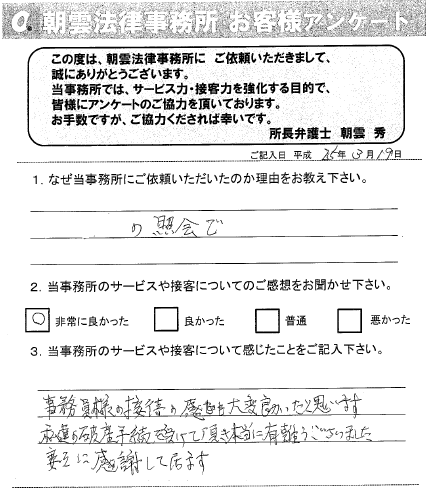 朝雲法律事務所 お客様アンケート
この度は、朝雲法律事務所に ご依頼いただきまして、
誠にありがとうございます。
当事務所では、サービス力・接客力を強化する目的で、
皆様にアンケートのご協力を頂いております。
お手数ですが、ご協力くだされば幸いです。
所長弁護士 朝雲 秀
ご記入日 平成 25年 3月19日
1. なぜ当事務所にご依頼いただいたのか理由をお教え下さい。
の照会で
2. 当事務所のサービスや接客についてのご感想をお聞かせ下さい。
○ 非常に良かった 良かった 普通 悪かった
3. 当事務所のサービスや接客について感じたことをご記入下さい。
事務員様の接待の感じも大変良かったと思います
の破産手続を受けて頂き本当に有難うございました
に感謝して居ます